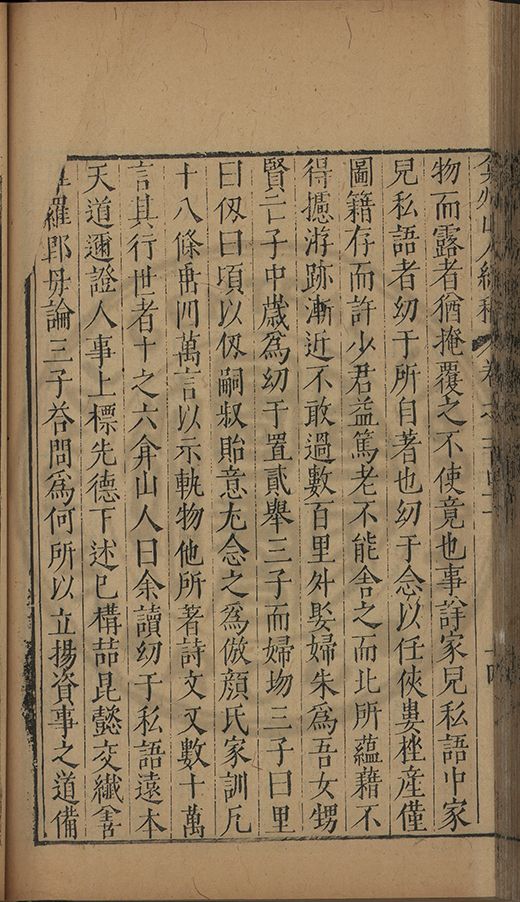 弇州山人續稿 卷之
物而露者猶掩覆之不使竟也事詳家兄私語中家
兄私語者幼于所自著也幼于念以任俠婁挫產僅
圖籍存而許少君益篤老不能舍之而此所蘊藉不
得攄游跡漸近不敢過數百里外娶婦朱為吾女甥
賢亡子中歲為幼于置貳舉三子而婦均三子曰里
曰伋曰頃以伋嗣叔貽意尤念之為倣顏氏家訓凡
十八條毋四萬言以示軌物他所著詩文又數十萬
言其行世者十之六弇山人曰余讀幼于私語遠本
天道邇證人事上標先德下述已構喆昆懿交纖書
羅郎毋論三子荅問為何所以立揚資事之道備